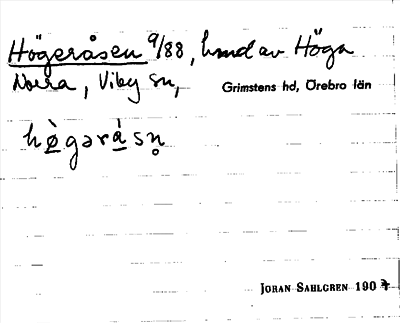 Högeråsen 9/88, hmd av Höga
Norra, Viby sn, Grimstens hd, Örebro län
hø̀gərå̀sn̥
JOHAN SAHLGREN 1907